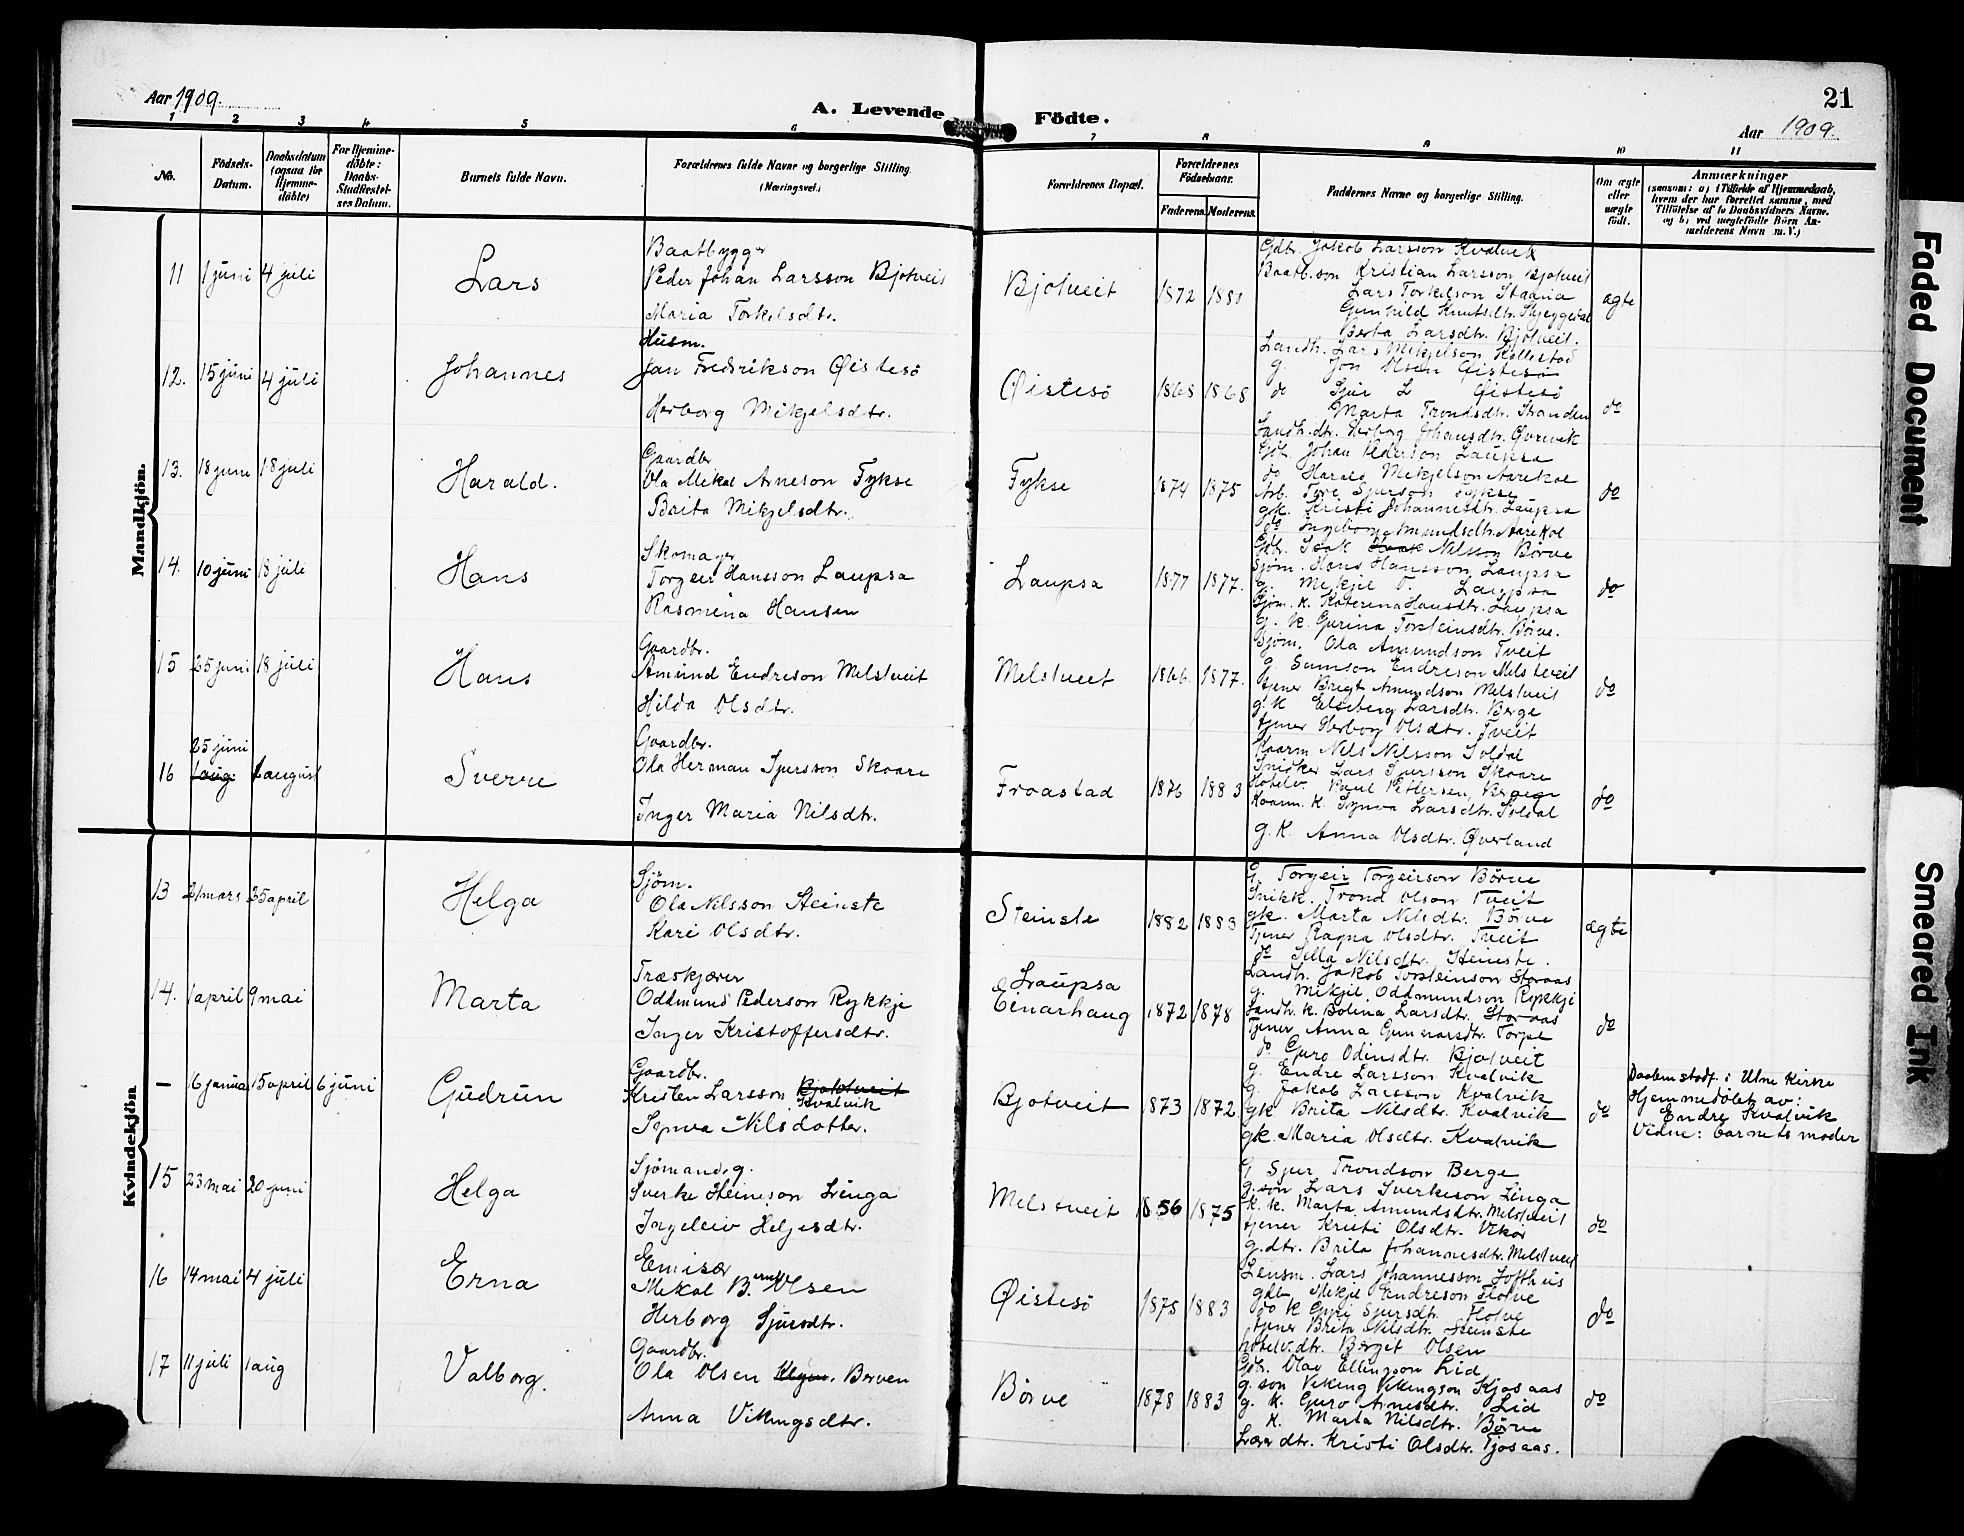 Aar 1909.
A. Levende Födte.
21
Aar 1909
1 2 3 4 5 6 7 8 9 10 11
No.
Födsels-Datum.
Daabsdatum (ogsaa for Hjemme-döbte)
For Hjemme-döbte: Daabs-Stadfæstel-ses Datum.
Barnets fulde Navn.
Forældrenes fulde Navne og borgerlige Stilling. (Næringsvei.)
Forældrenes Bopæl.
Forældrenes Födselsaar.
Faderens. Moderens.
Faddernes Navne og borgerlige Stilling.
Om ægte eller uægte födt.
Anmærkninger
(saasom: a) i Tilfælde af Hjemmedaab,
hvem der har forrettet samme, med
Tilföielse af to Daabsvidners Navne,
og b) ved uægtefödte Börn An-
melderens Navn m. V.)
Mandkjön.
11 1 juni 4 juli Lars
Baatbygger
Peder Johan Larsson Bjotveit
Maria Torkelsdtr.
Bjotveit 1872
Gdb. Jakob Larsson Kvalvik
Baatb.son Kristian Larsson Bjotveit
Lars Torkelson
Gunhild Knutsdtr.
Berta Larsdtr. Bjotveit.
ægte
12. 15 juni 4 juli Johannes
Husm.
Jan Fredrikson Øistesö
Herborg Mikjelsdtr.
Øistesö 1868 1868
Landh. Lars Mikjelson
g. Jon Olsen Øistesö
do Sjur L Øistesö
Marta Trondsdtr. Stranden
Landh. dtr. Herborg Johansdtr.
do
13. 18 juni 18 juli Harald.
Gaardbr.
Ola Mikal Arneson Fykse
Brita Mikjelsdtr.
Fykse 1874 1875
Gdb. Johan Pederson Laupsa
do Harald Mikjelson Aarekol
Arb. Tore Sjurson Fykse
gk. Kristi Johannesdtr. Laupsa
do Ingeborg Amundsdtr. Aarekol
do
14. 10 juni 18 juli Hans
Skomager
Torgeir Hansson Laupsa
Rasmina Hansen
Laupsa 1877 1877.
Gdb. Isak Nilsson Børve
Sjöm. Hans Hansson Laupsa
g. Mikjel T. Laupsa
Sjöm. k. Katerina Hansdtr. Laupsa
g. k. Gurina Torsteinsdtr. Børve.
do
15 25 juni 18 juli Hans
Gaardbr.
Amund Endreson Melstveit
Hilda Olsdtr.
Melstveit 1866. 1877.
Sjöm. Ola Amundson Tveit
g. Samson Endreson Melstveit
tjener Brigt Amundson Melstveit
g. k Elseberg Larsdtr. Berge
tjener Herborg Olsdtr. Tveit
do
16 25 juni 1 aug. 1 august Sverre
Gaardbr.
Ola Herman Sjursson Skaare
Inger Maria Nilsdtr.
Fraastad 1876 1883
Kaarm Nils Nilsson Soldal
Snidker Lars Sjursson Skaare
Hotelv. Paul Pettersen, Bergen
Kaarm. k. Synva Larsdtr. Soldal
g. K. Anna Olsdtr. Øverland
do
Kvindekjön
13 21 mars 25 april Helga
Sjöm.
Ola Nilsson Steinstø
Kari Olsdtr.
Steinstø 1882 1883
G. Torgeir Torgeirson Børve
Snikk. Trond Olson Tveit
gk. Marta Nilsdtr. Børve
Tjener Ragna Olsdtr. Tveit
do Silla Nilsdtr. Steinstø.
ægte
14. 1 april 9 mai Marta
Træskjærer
Oddmund Pederson Rykkje
Inger Kristoffersdtr.
Laupsa
Einarhaug 1872 1878
Landh. Jakob Torsteinson Storaas
g. Mikjel Oddmundson Rykkje
Landh. k. Bolina Larsdtr. Storaas
Tjener Anna Gunnarsdtr. Torpe
do Guro Odinsdtr. Bjotveit
do
— 16 januar 15 april 6 juni Gudrun
Gaardbr.
Kristen Larsson Bjotveit Kvalvik
Synva Nilsdotter.
Bjotveit 1873 1872
g. Endre Larsson Kvalvik
G. Jakob Larsson Kvalvik
Gk. Brita Nilsdtr. Kvalvik
gk. Maria Olsdtr. Kvalvik
do
Daaben stadf. i Ulne kirke
Hjemmedøbt av:
Endre Kvalvik
Vidne: barnets moder
15 23 mai 20 juni Helga
Sjömand, g.
Sverke Steineson Linga
Ingeleiv Heljesdtr.
Melstveit 1856 1875
G Sjur Trondson Berge
g. son Lars Sverkeson Linga
k. k. Marta Amundsdtr. Melstveit
tjener Kristi Olsdtr. Vikør
g. dtr. Brita Johannesdtr. Melstveit
do
16 14 mai 4 juli Erna
Emisær
Mekal B. Olsen
Herborg Sjursdtr.
Øistesö 1875 1883
Lensm. Lars Johannesson Lofthus
gdb Mikjel Endreson Flotve
do k Guri Sjursdtr. Flotve
tjener Brita Nilsdtr. Steinstø
hotelv. dtr. Borget Olsen
do
17 11 juli 1 aug Valborg.
Gaardbr.
Ola Olsen Børven
Anna Vikingsdtr.
Börve 1878 1883
Gdb. Olav Ellingson Lid
g. son Viking Vikingson Kjosaas
g. k. Guro Arnesdtr. Lid
k. Marta Nilsdtr. Børve
Lærer dtr. Kristi Olsdtr. Tjosaas.
do
Faded Document
Smeared Ink